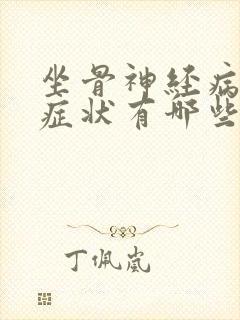 坐骨神经病
症状有哪些
丁佩岚